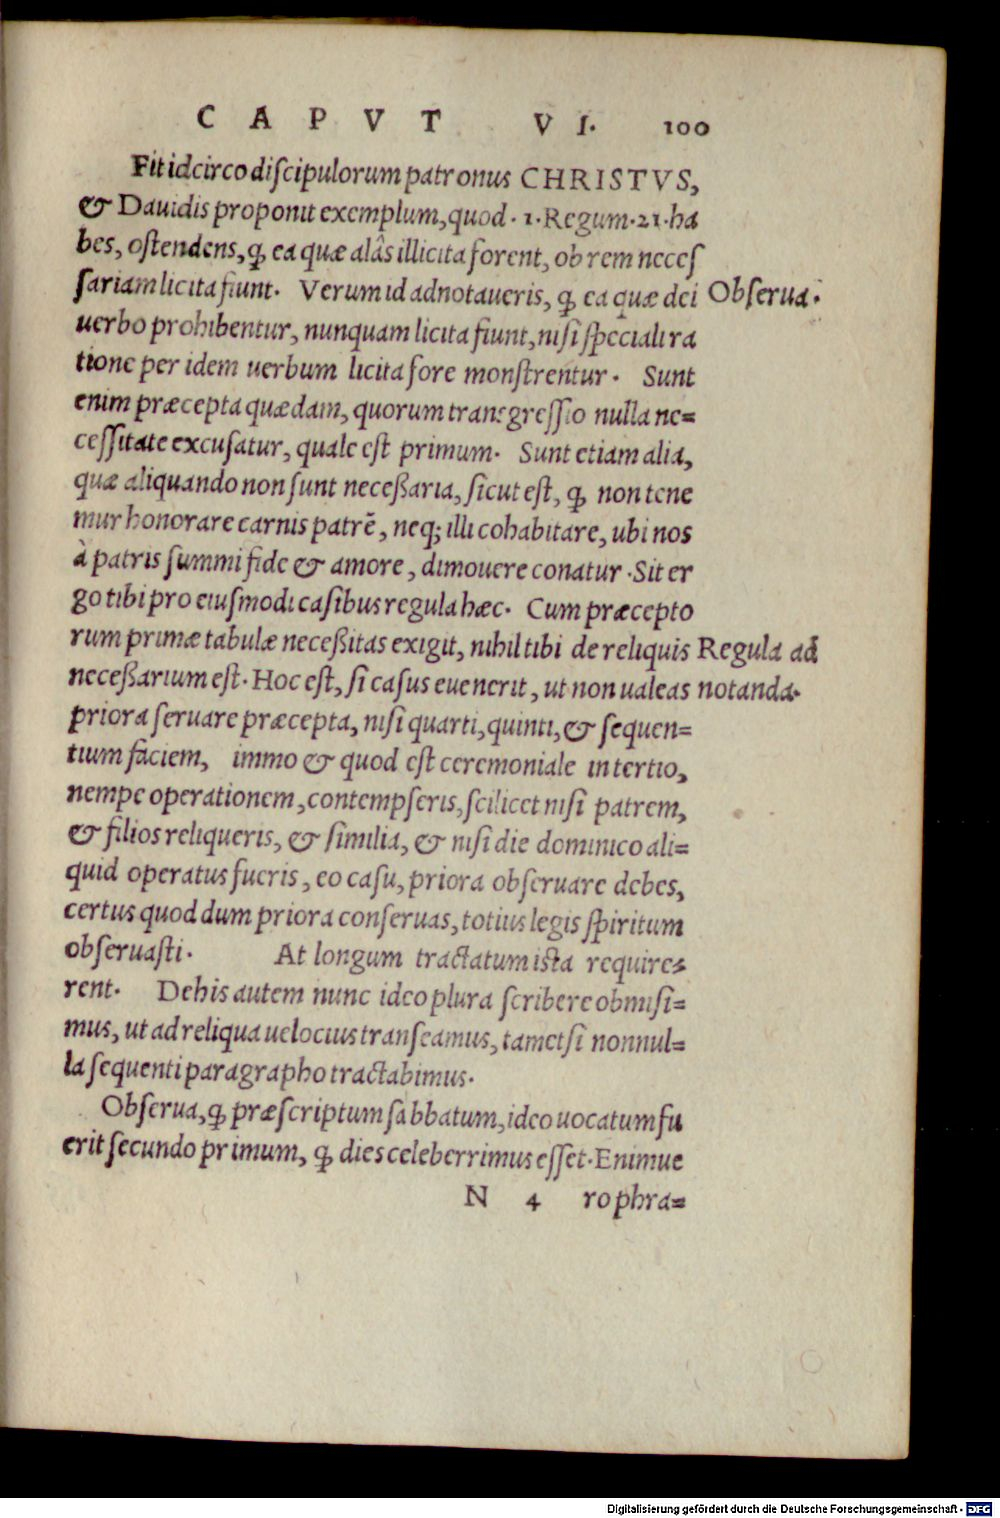 CAPVT VI. 100
Fit idcirco discipulorum patronus CHRISTVS,
& Dauidis proponit exemplum, quod .1. Regum. 21. ha
bes, ostendens, ꝙ ea quæ aliâs illicita forent, ob rem neces
sariam licita fiunt. Verum id adnotaueris, ꝙ ea quæ dei
Obserua.
uerbo prohibentur, nunquam licita fiunt, nisi speciali ra
tione per idem uerbum licita fore monstrentur. Sunt
enim præcepta quædam, quorum transgressio nulla ne=
cessitate excusatur, quale est primum. Sunt etiam alia,
quæ aliquando non sunt neceßaria, sicut est, ꝙ non tene
mur honorare carnis patrẽ, neq; illi cohabitare, ubi nos
à patris summi fide & amore, dimouere conatur. Sit er
go tibi pro eiusmodi casibus regula hæc. Cum præcepto
rum primæ tabulæ neceßitas exigit, nihil tibi de reliquis
Regula ad
neceßarium est. Hoc est, si casus euenerit, ut non ualeas
notanda.
priora seruare præcepta, nisi quarti, quinti, & sequen=
tium faciem, immo & quod est ceremoniale in tertio,
nempe operationem, contempseris, scilicet nisi patrem,
& filios reliqueris, & similia, & nisi die dominico ali=
quid operatus fueris, eo casu, priora obseruare debes,
certus quod dum priora conseruas, totius legis spiritum
obseruasti. At longum tractatum ista require=
rent. De his autem nunc ideo plura scribere obmisi=
mus, ut ad reliqua uelocius transeamus, tametsi nonnul=
la sequenti paragrapho tractabimus.
Obserua, ꝙ præscriptum sabbatum, ideo uocatum fu
erit secundo primum, ꝙ dies celeberrimus esset. Enimue
N 4 ro phra=
Digitalisierung gefördert durch die Deutsche Forschungsgemeinschaft - DFG